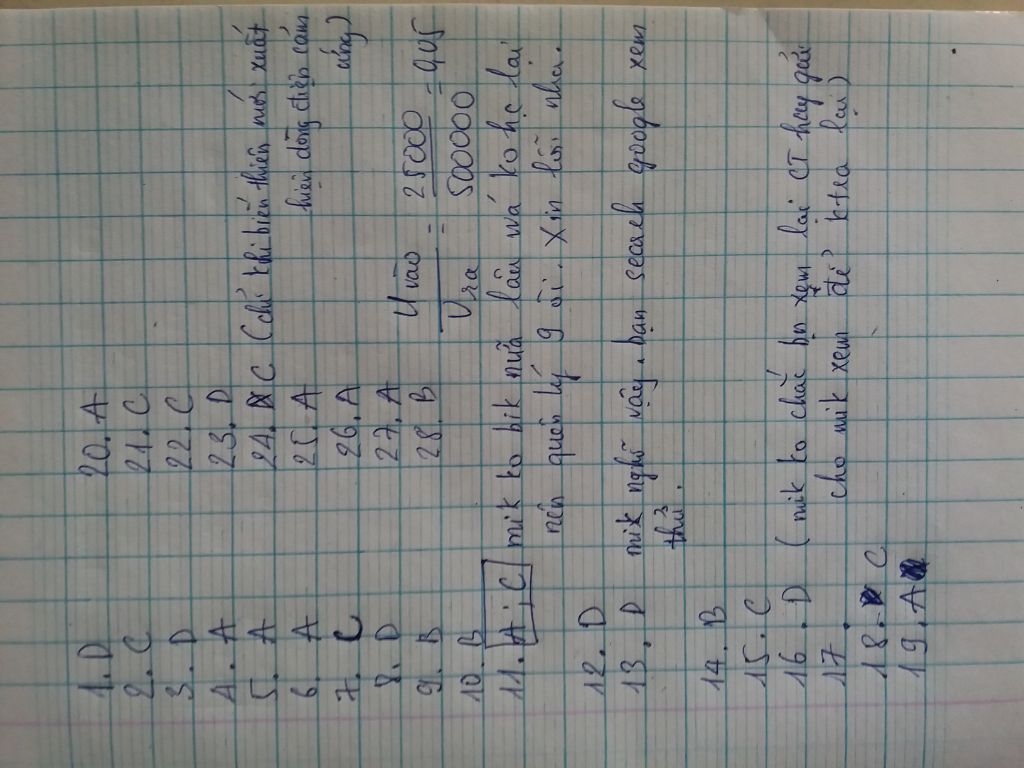 1. D
2. C
3. D
4. A
5. A
6. A
7. C
8. D
9. B
10. B
11. A; C mik ko bik nữa lâu wá ko học lại
nên quên lý 9 òi. Xin lỗi nha.
12. D
13. D mik nghĩ vậy. bạn seach google xem
thử.
14. B
15. C
16. D (mik ko chắc bạn xem lại CT hay gửi
cho mik xem để ktra lại)
17.
18. C
19. A
20. A
21. C
22. C
23. D
24. C (chỉ khi biến thiên mới xuất
hiện dòng điện cảm
ứng)
25. A
26. A
27. A
28. B
U vào / U ra = 25000 / 500000 = 0,05